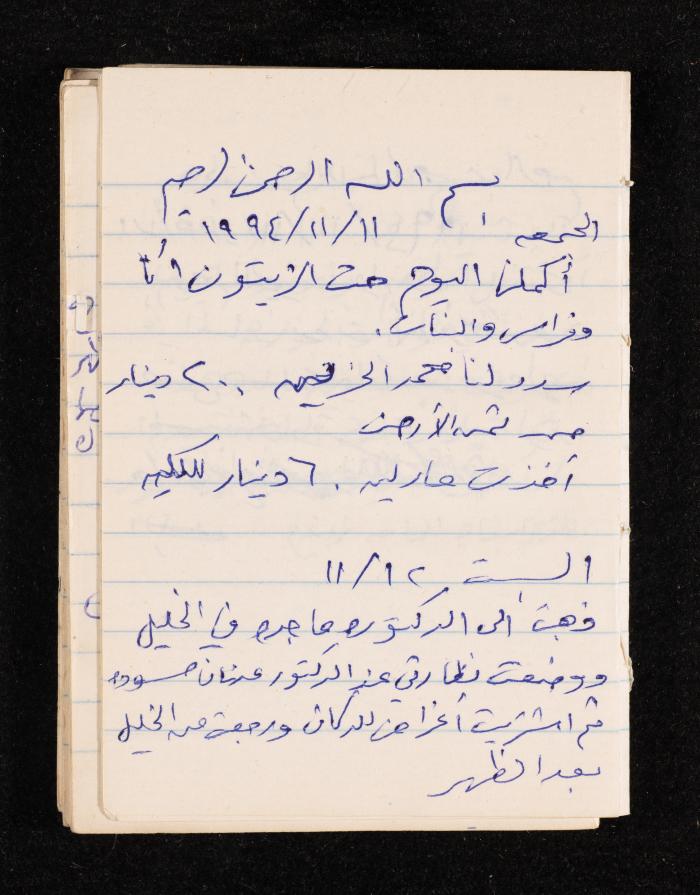 بسم الله الرحمن الرحيم
الجمعه ١٩٩٤/١١/١١
أكملنا اليوم حت الزيتون أنا
وفراس والبنات.
سدد لنا محمد ٢٠٠ دينار
من ثمن الأرض
أخذت ٦٠ دينار للكليه
السبت ١١/١٢
ذهبت الى الدكتوره ماجده في الخليل
ووضعت نظارتي عند الدكتور عدنان مسوده
ثم اشتريت أغراض للدكان ورجعت من الخليل
بعد الظهر